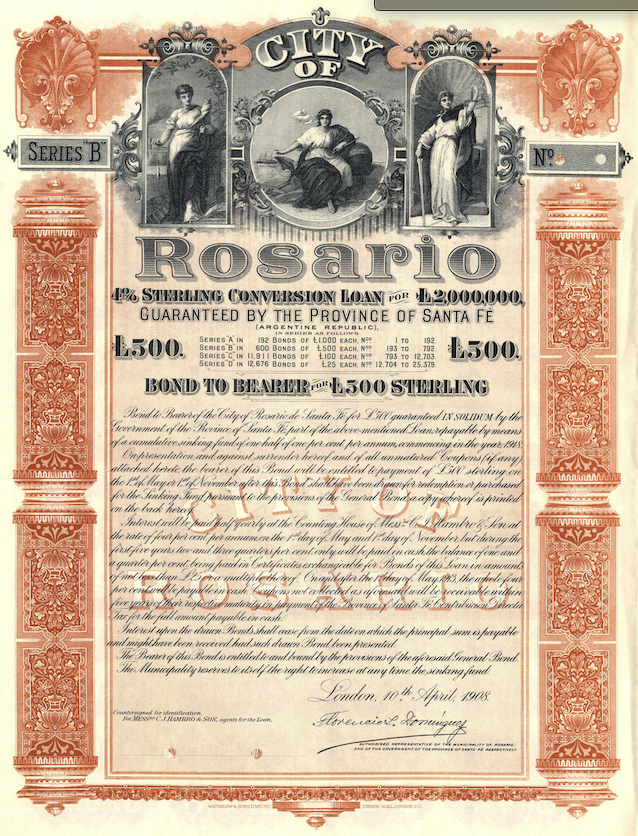 CITY
OF
SERIES "B"
No.
Rosario
4% STERLING CONVERSION LOAN FOR £2,000,000,
GUARANTEED BY THE PROVINCE OF SANTA FÉ
(ARGENTINE REPUBLIC),
IN SERIES AS FOLLOWS
£500.
SERIES "A" IN 192 BONDS OF £1,000 EACH, Nos 1 TO 192.
SERIES "B" IN 600 BONDS OF £500 EACH, Nos 193 TO 792.
SERIES "C" IN 11,911 BONDS OF £100 EACH, Nos 793 TO 12,703.
SERIES "D" IN 12,676 BONDS OF £25 EACH, Nos 12,704 TO 25,379.
£500.
BOND TO BEARER FOR £500 STERLING
Bond to Bearer of the City of Rosario de Santa Fe for £500 guaranteed IN SOLIDUM by the
Government of the Province of Santa Fe, part of the above-mentioned Loan, repayable by means
of a cumulative sinking fund of one half of one per cent. per annum, commencing in the year 1918.
On presentation and against surrender hereof and of all unmatured Coupons (if any)
attached hereto, the bearer of this Bond will be entitled to payment of £500 sterling on
the 1st of May or 1st of November after this Bond shall have been drawn for redemption or purchased
for the Sinking Fund pursuant to the provisions of the General Bond, a copy whereof is printed
on the back hereof.
Interest will be paid half yearly at the Counting House of Messrs C. J. Hambro & Son at
the rate of four per cent. per annum on the 1st day of May and 1st day of November, but during the
first five years two and three quarters per cent. only will be paid in cash, the balance of one and
a quarter per cent. being paid in Certificates exchangeable for Bonds of this Loan in amounts
of not less than £25 or multiples thereof. On and after the 1st day of May the rate of four
per cent. will be payable in cash. Coupons not collected as aforesaid will be receivable within
five years of their respective maturity in payment of the Province of Santa Fe Contribucion Directa
Tax for the full amount payable in cash.
Interest upon the drawn Bonds shall cease from the date on which the principal sum is payable
and might have been received had such drawn Bond been presented.
The Bearer of this Bond is entitled to and bound by the provisions of the aforesaid General Bond.
The Municipality reserves to itself the right to increase at any time the sinking fund.
CITY OF
ROSARIO
London, 10th April, 1908.
Countersigned for identification,
For MESSRS C. J. HAMBRO & SON, agents for the Loan,
Florencio L. Dominguez
AUTHORISED REPRESENTATIVE OF THE MUNICIPALITY OF ROSARIO
AND OF THE GOVERNMENT OF THE PROVINCE OF SANTA FÉ RESPECTIVELY
WATERLOW & SONS LIMITED, LONDON WALL, LONDON, E.C.